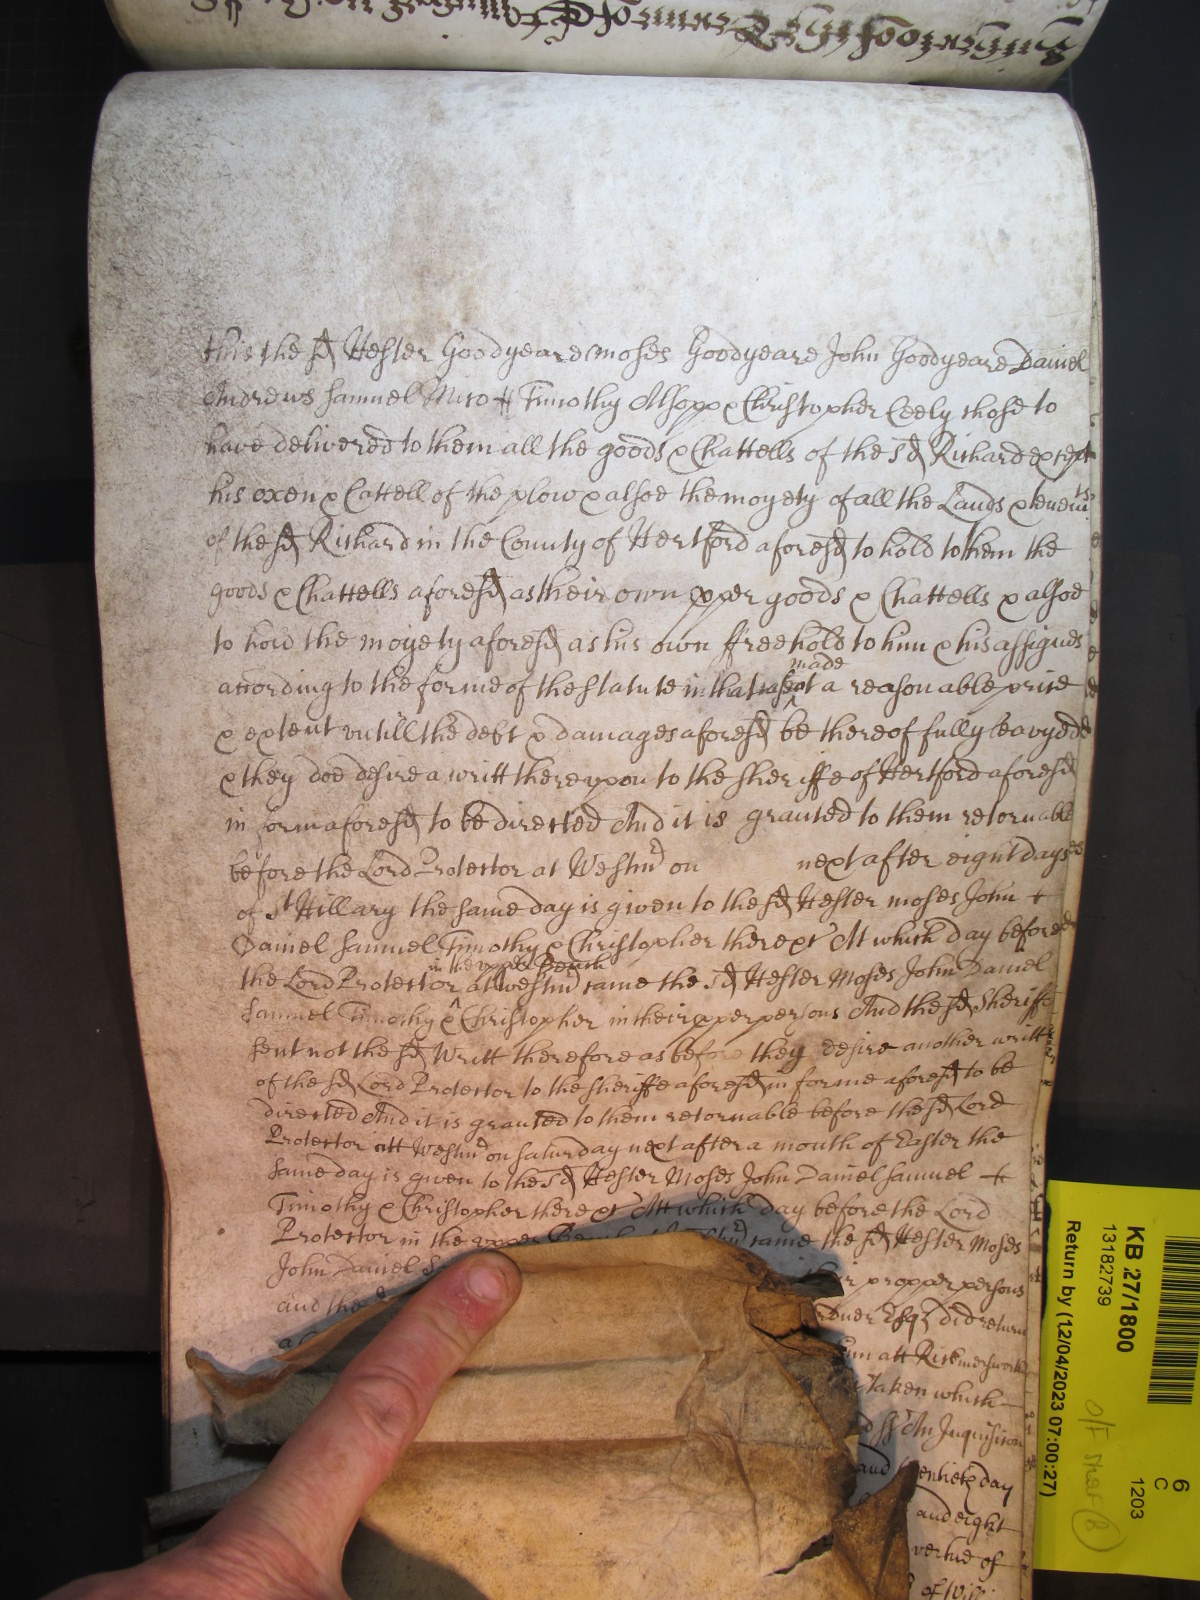 this the sd Hester Goodyeare moses Goodyeare John Goodyeare Daniel
Andrews Samuel Mico & Timothy Alsopp & Christopher Ceely chose to
have delivered to them all the goods & Chattells of the sd Richard except
his oxen & Cattell of the plow & alsoe the moyety of all the Lands & tenemts
of the sd Richard in the County of Hertford aforesd to hold to them the
goods & Chattells aforesd as their own pper goods & Chattells & alsoe
to hold the moyety aforesd as his own ffreehold to him & his assignes
according to the forme of the statute in that case made at a reasonable price
& extent untill the debt & damages aforesd be thereof fully leavyed
& they doe desire a writt thereupon to the sheriffe of Hertford aforesd
in form aforesd to be directed And it is granted to them retornable
before the Lord Protector at Westmr on next after eight dayes
of St Hillary the same day is given to the sd Hester moses John &
Daniel Samuel Timothy & Christopher there &c At which day before
the Lord Protector in the upper Bench at westmr came the sd Hester Moses John Daniel
Samuel Timothy & Christopher in their pper persons And the sd Sheriffe
sent not the sd Writt therefore as before they desire another writt
of the sd Lord Protector to the sheriffe aforesd in forme aforesd to be
directed And it is granted to them retornable before the sd Lord
Protector att Westmr on saturday next after a month of Easter the
same day is given to the sd Hester Moses John Daniel Samuel &
Timothy & Christopher there &c Att which day before the Lord
Protector in the upper came the sd Hester Moses
John Daniel propper persons
and the Esqr did return
att Rickmersworth
taken which
An Inquisicon
and day
and eight
vertue of
of
KB 27/1800
13182739
Return by (12/04/2023 07:00:27)
6
C
1203